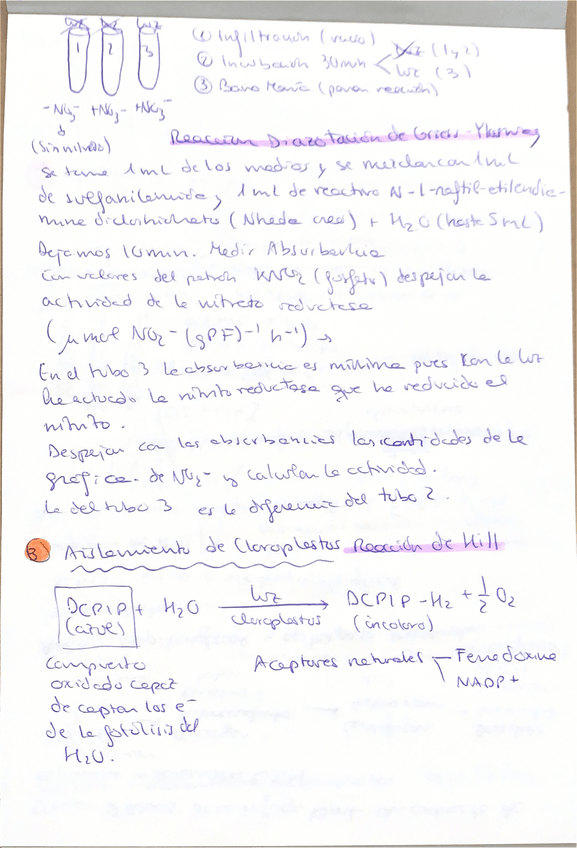 luz luz luz
1 2 3
① Infiltración (vacío)
② Incubación 30 min < luz (1 y 2)
luz (3)
③ Baño María (paran reacción)
-NO3- +NO3- +NO3-
(Sin nitrato)
Reacción Diazotación de Griess-Ylosvay
Se toma 1 mL de los medios y se mezclan con 1 mL
de sulfanilamida y 1 mL de reactivo N-1-naftil-etilendia-
mina diclorhidrato + H2O (hasta 5 mL)
Dejamos 10 min. Medir Absorbancia
Con valores del patrón KNO2 despejan la
actividad de la nitrato reductasa
(μmol NO2- (gPF)-1 h-1) →
En el tubo 3 la absorbancia es mínima pues con la luz
ha actuado la nitrito reductasa que ha reducido el
nitrito.
Despejar con las absorbancias las cantidades de la
gráfica de NO2- y calculan la actividad.
La del tubo 3 es la diferencia del tubo 2.
B) Aislamiento de Cloroplastos Reacción de Hill
DCPIP + H2O luz → DCPIP-H2 + 1/2 O2
(azul) cloroplastos (incolora)
Compuesto Aceptores naturales Ferredoxina
oxidado capaz NADP+
de captar los e-
de la fotólisis del
H2O.